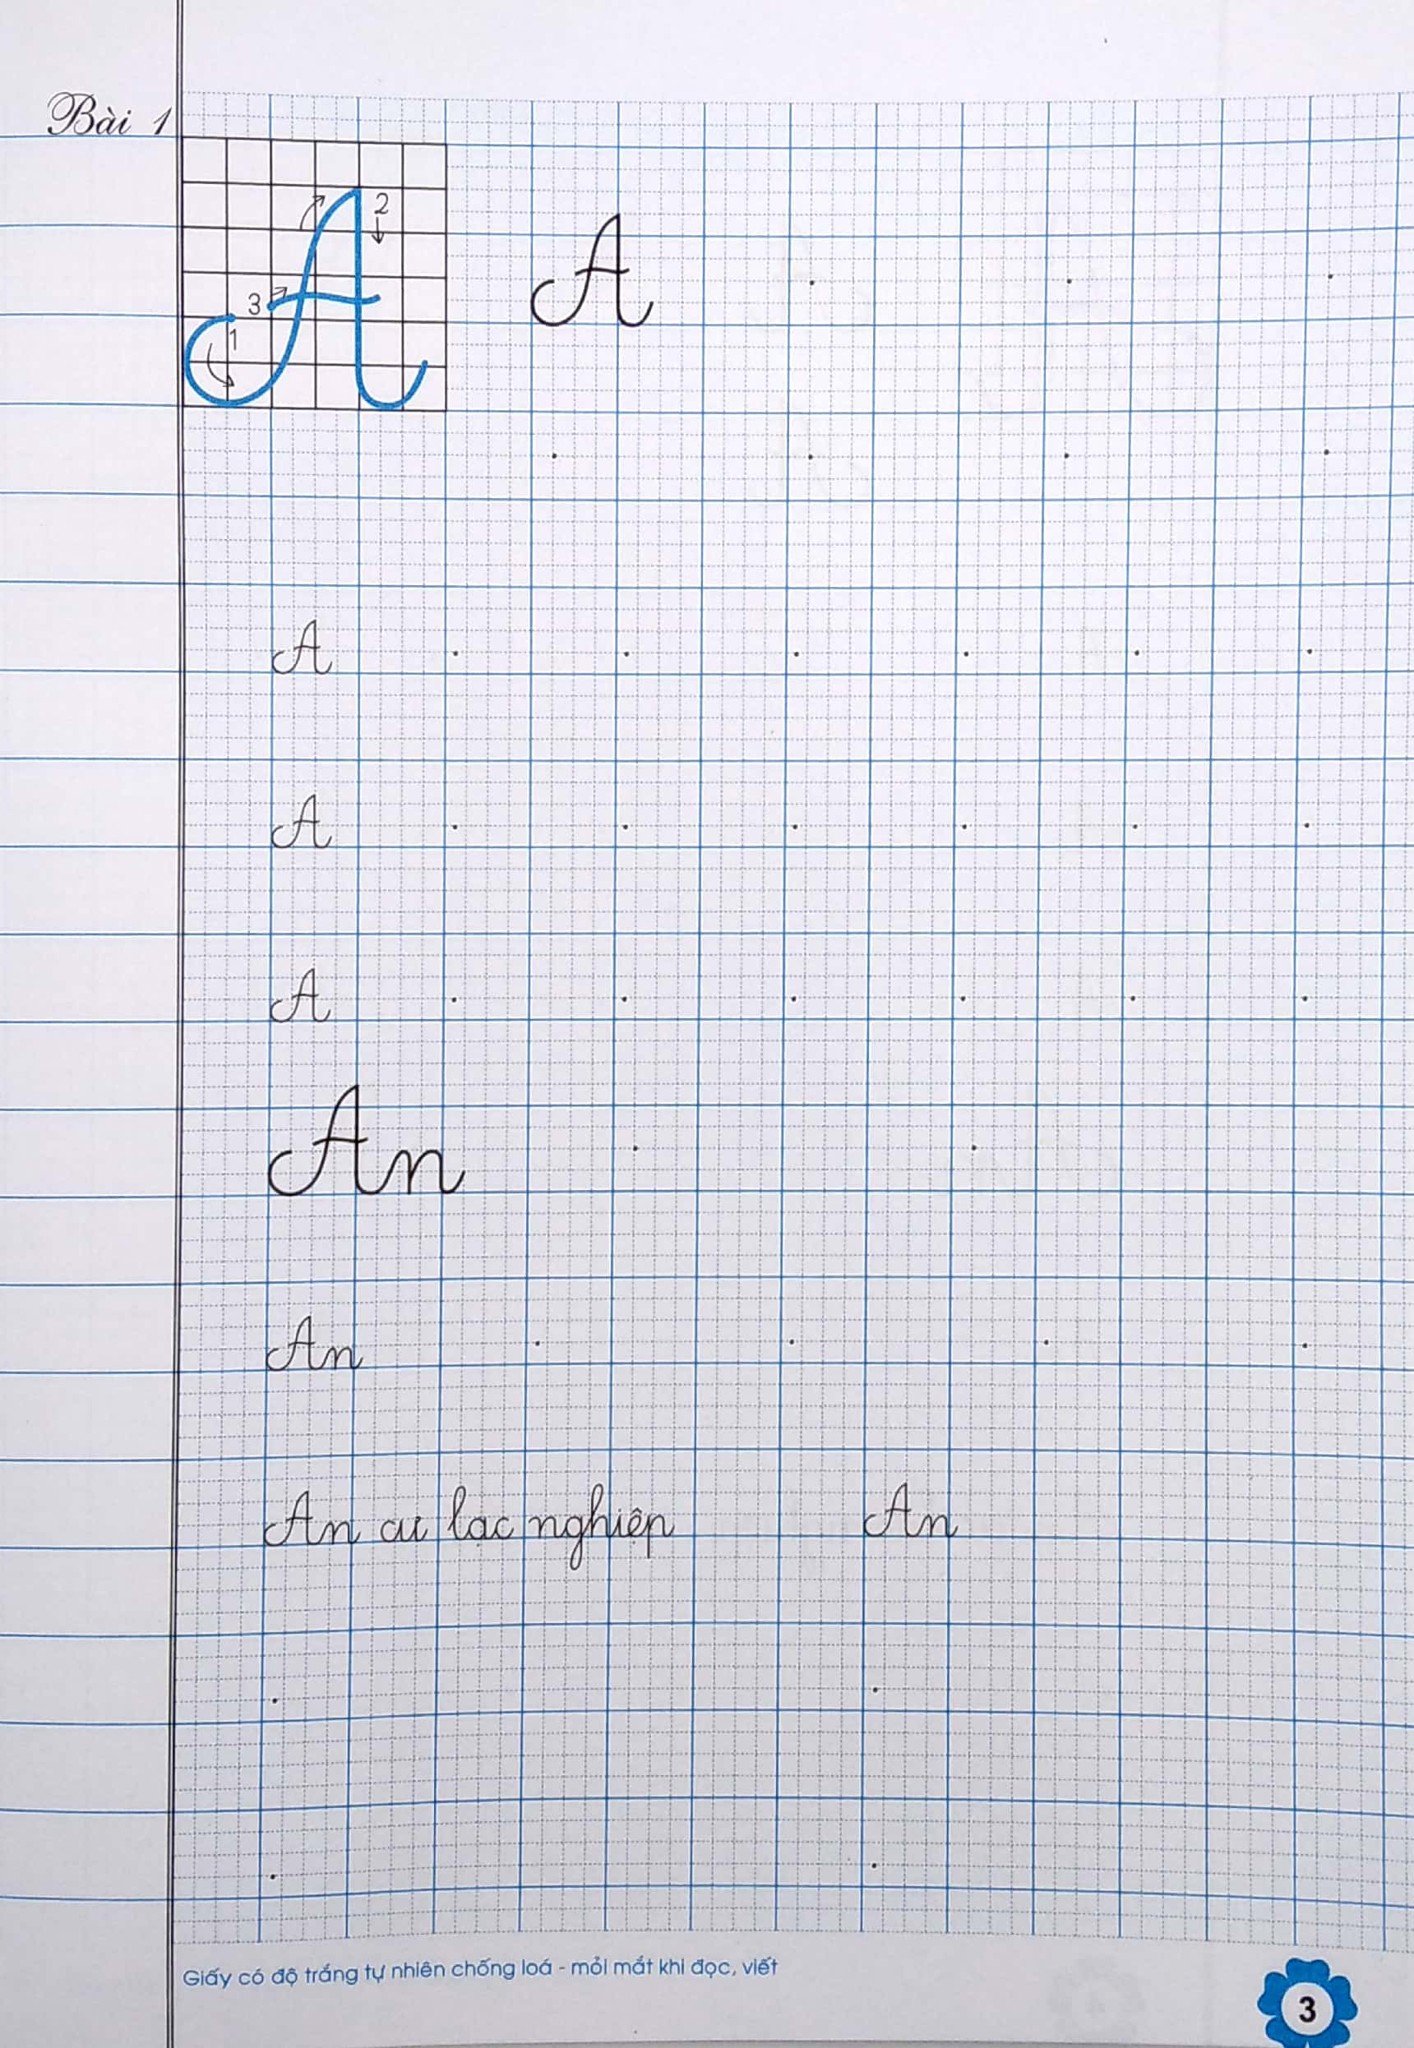 Bài 1
2
3
1
A
A
A
A
A
An
An
An cư lạc nghiệp An
Giấy có độ trắng tự nhiên chống loá - mỏi mắt khi đọc, viết
3